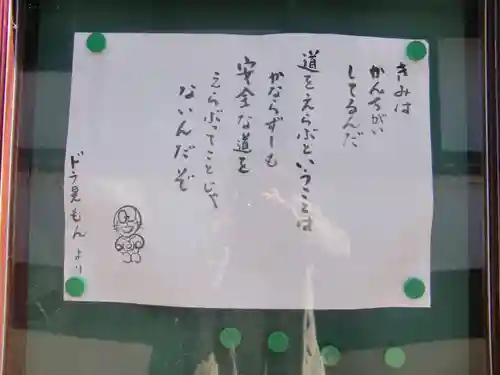 きみは
かんちがい
してるんだ
道をえらぶということは
かならずーも
安全な道を
えらぶってことじゃ
ないんだぞ
ドラえもん より